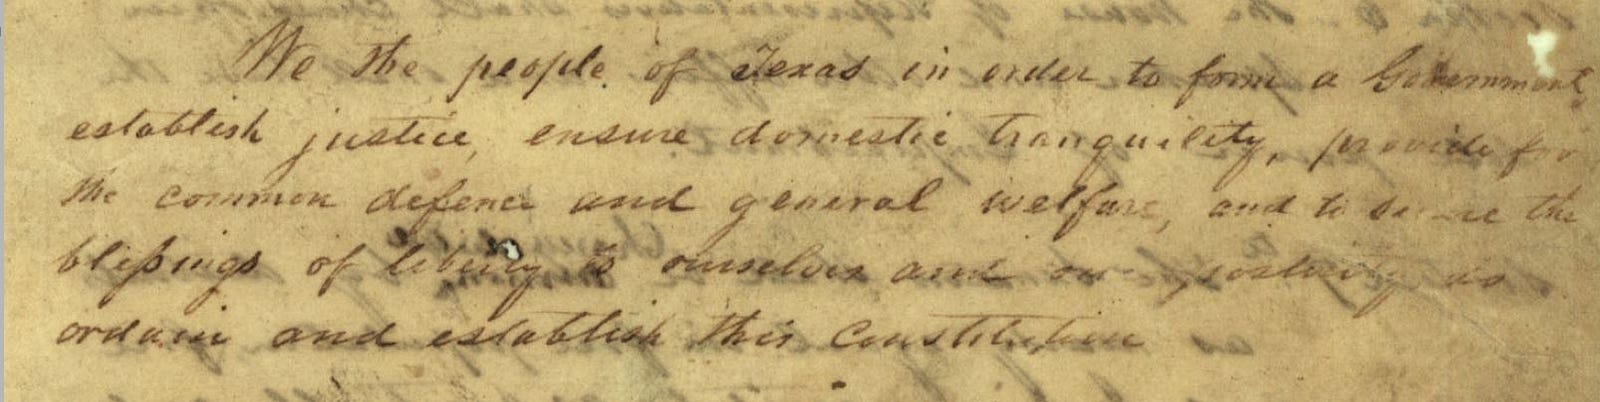 We the people of Texas in order to form a Government,
establish justice, ensure domestic tranquility, provide for
the common defence and general welfare, and to secure the
blessings of liberty to ourselves and our posterity do
ordain and establish this Constitution